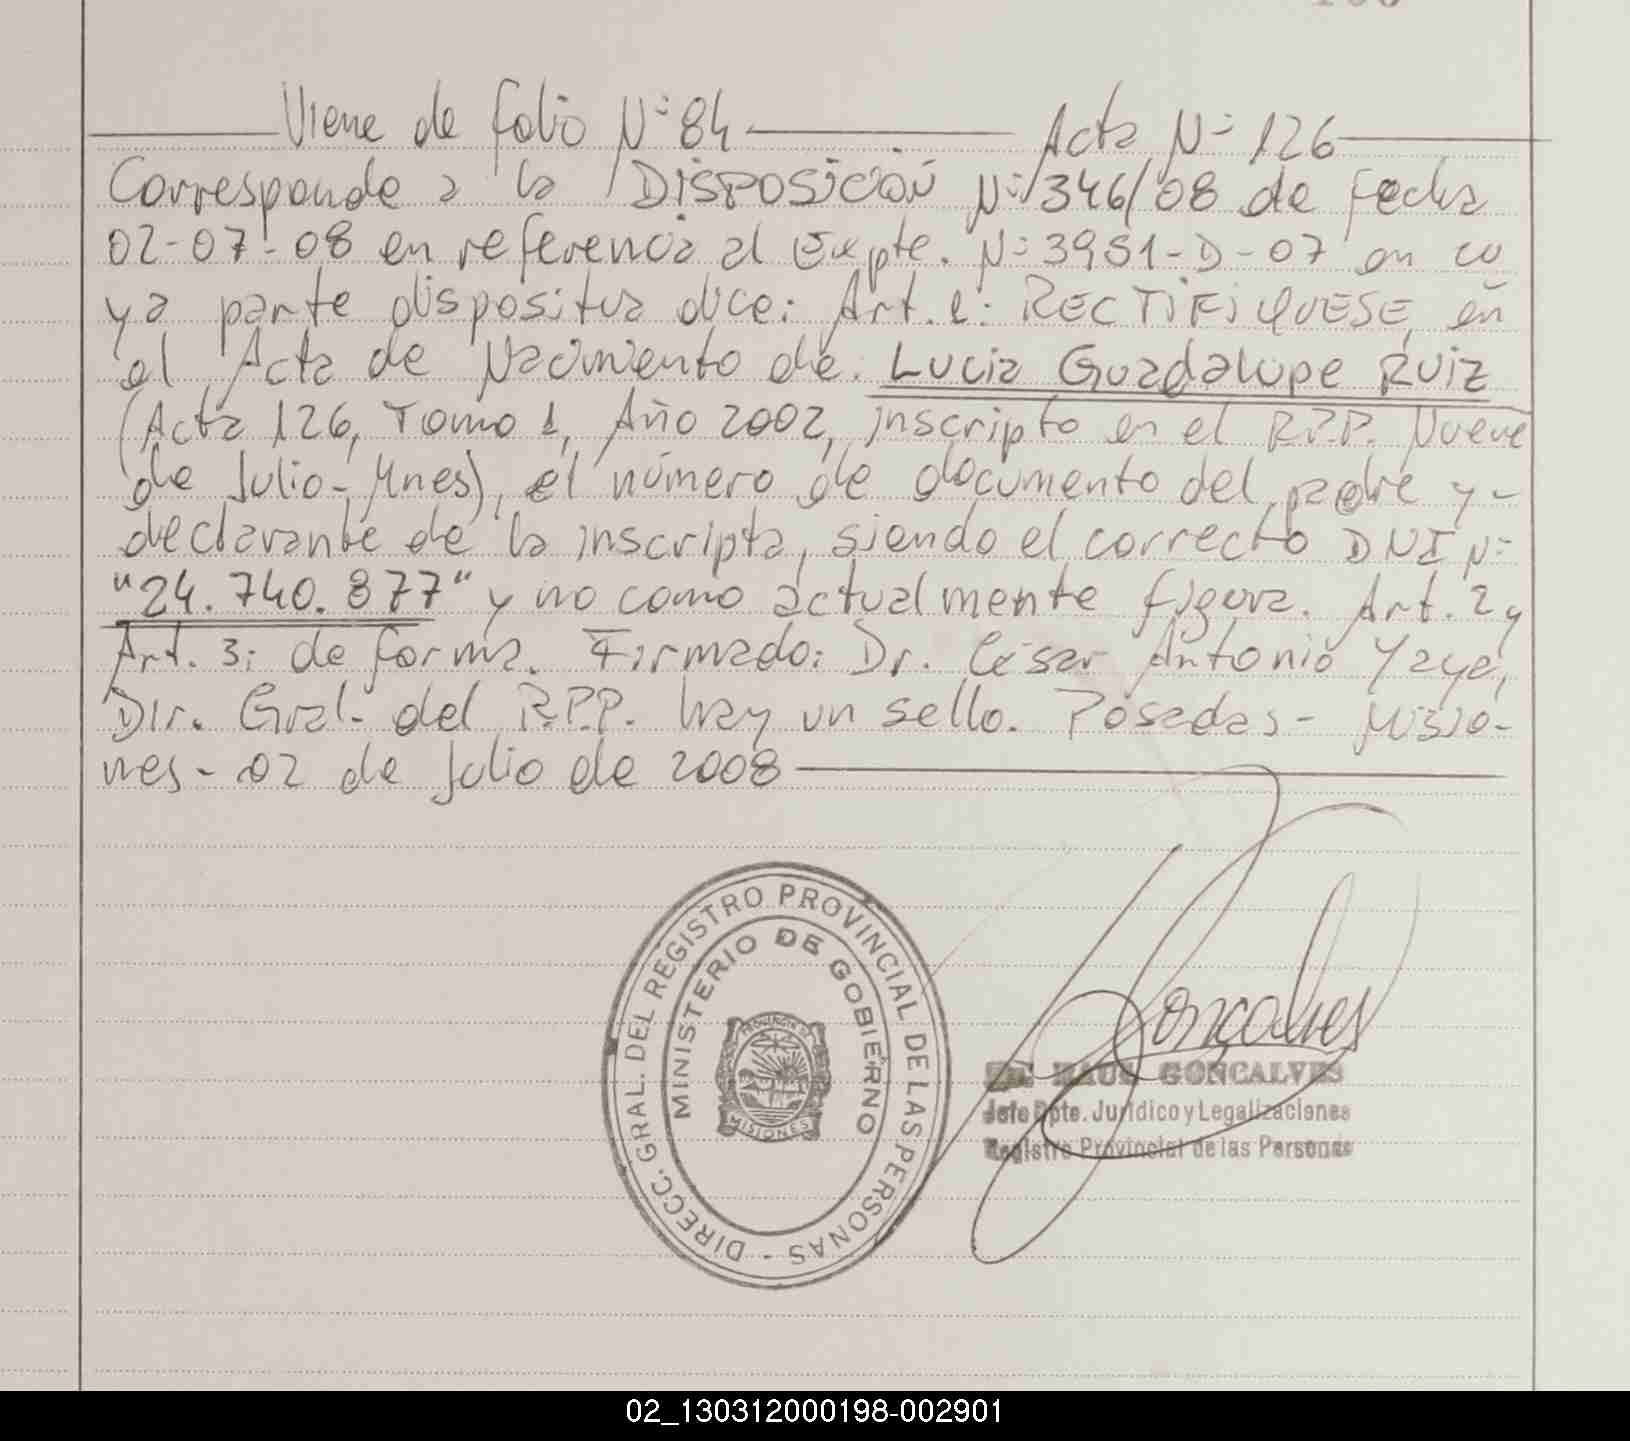 Viene de folio Nº 84 Acta Nº 126
Corresponde a la DISPOSICIÓN Nº 346/08 de fecha
02-07-08 en referencia al Expte. Nº 3951-D-07 en cu
ya parte dispositiva dice: Art. 1: RECTIFIQUESE, en
el Acta de Nacimiento de: Lucia Guadalupe Ruiz
(Acta 126, Tomo 1, Año 2002, inscripto en el R.P.P. Nueve
de Julio-Mnes), el número de documento del padre y -
declarante de la inscripta, siendo el correcto DNI Nº
"24.740.877" y no como actualmente figura. Art. 2 y
Art. 3: de forma. Firmado: Dr. César Antonio Yaya,
Dir. Gral- del R.P.P. hay un sello. Posadas - Misio-
nes - 02 de Julio de 2008
DIRECC. GRAL. DEL REGISTRO PROVINCIAL DE LAS PERSONAS -
MINISTERIO DE GOBIERNO
PROVINCIA DE
MISIONES
Gonçalves
GONCALVES
Jefe Dpto. Jurídico y Legalizaciones
Registro Provincial de las Personas
02_130312000198-002901